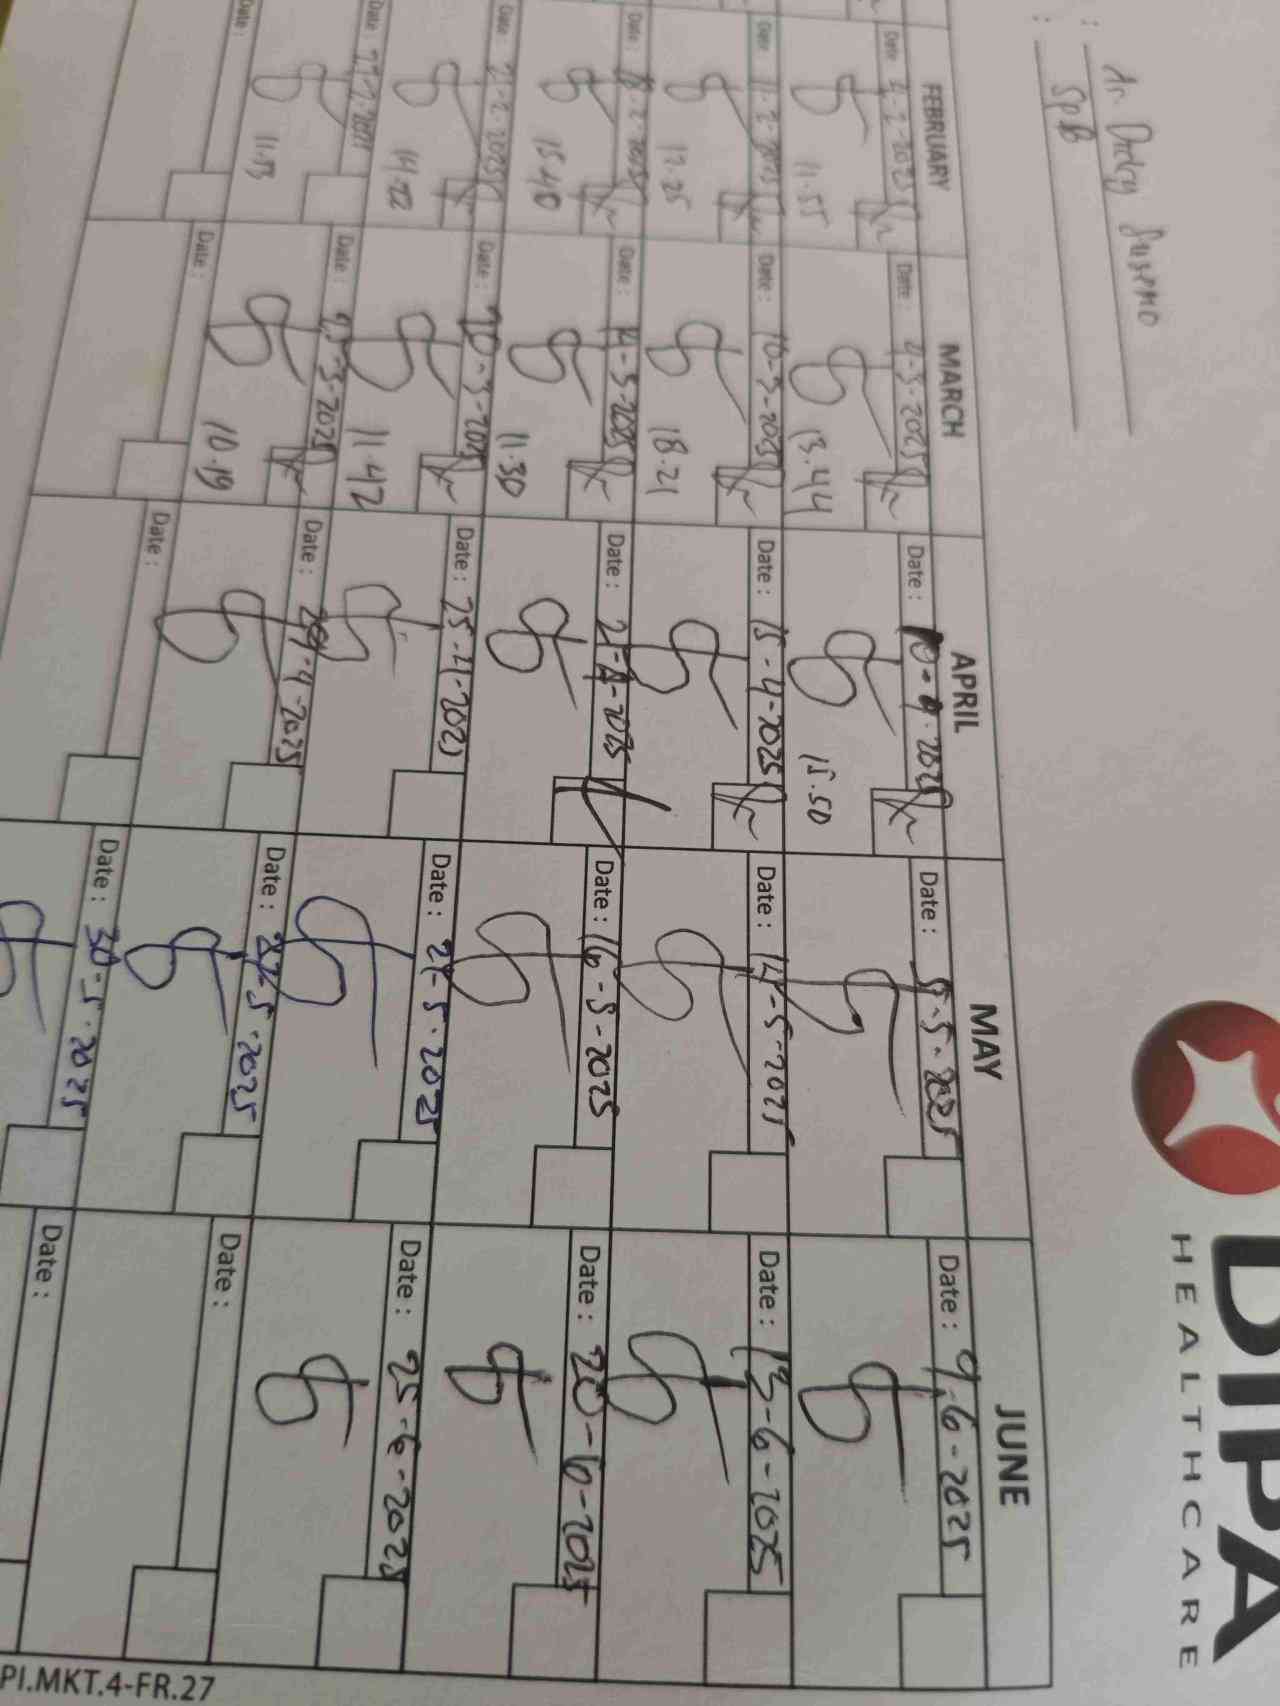 DIPA
HEALTHCARE
: dr. Dddy Susemo
: SpB
FEBRUARY MARCH APRIL MAY JUNE
Date : 4-2-2025 Date : 4-3-2025 Date : 10-4-2025 Date : 5-5-2025 Date : 9-6-2025
11.55 13.44 15.50
Date : 11-2-2025 Date : 10-3-2025 Date : 15-4-2025 Date : 14-5-2025 Date : 13-6-2025
12.25 18.21
Date : 18-2-2025 Date : 14-3-2025 Date : 21-4-2025 Date : 16-5-2025 Date : 20-6-2025
15.40 11.30
Date : 21-2-2025 Date : 20-3-2025 Date : 25-4-2025 Date : 21-5-2025 Date : 25-6-2025
14.02 11.42
Date : 27-2-2025 Date : 25-3-2025 Date : 29-4-2025 Date : 27-5-2025 Date :
11.53 10.19
Date : Date : Date : Date : 30-5-2025 Date :
PI.MKT.4-FR.27